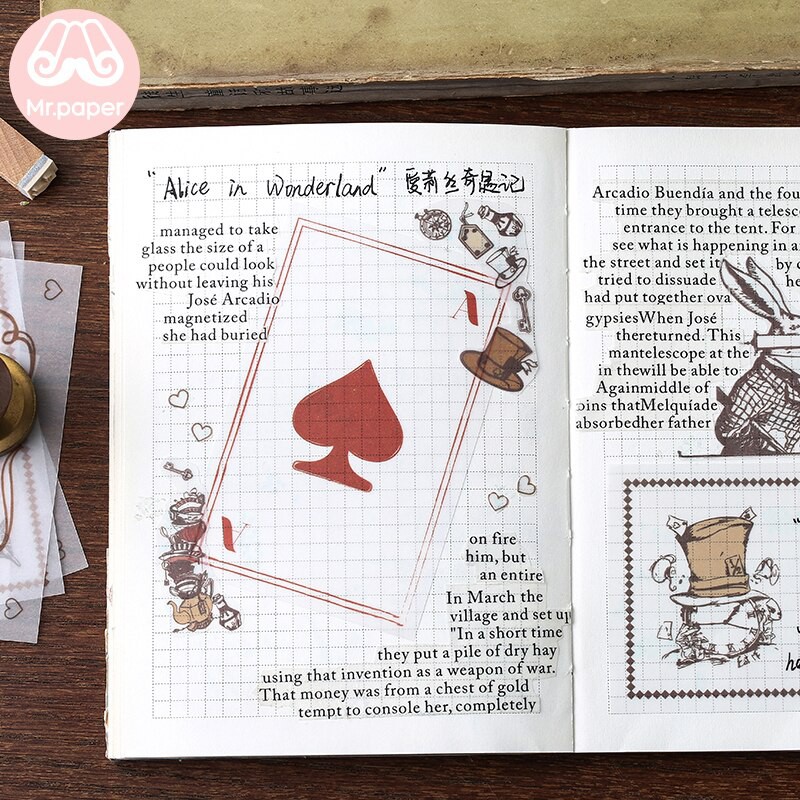 Mr.paper
"Alice in Wonderland" 爱莉丝奇遇记
managed to take
glass the size of a
people could look
without leaving his
José Arcadio
magnetized
she had buried
A
A
on fire
him, but
an entire
In March the
village and set up
"In a short time
they put a pile of dry hay
using that invention as a weapon of war.
That money was from a chest of gold
tempt to console her, completely
Arcadio Buendía and the fou
time they brought a telesc
entrance to the tent. For
see what is happening in a
the street and set it by
tried to dissuade he
had put together ova
gypsiesWhen José
thereturned. This
mantelescope at the
in thewill be able to
Againmiddle of
oins thatMelquíade
absorbedher father